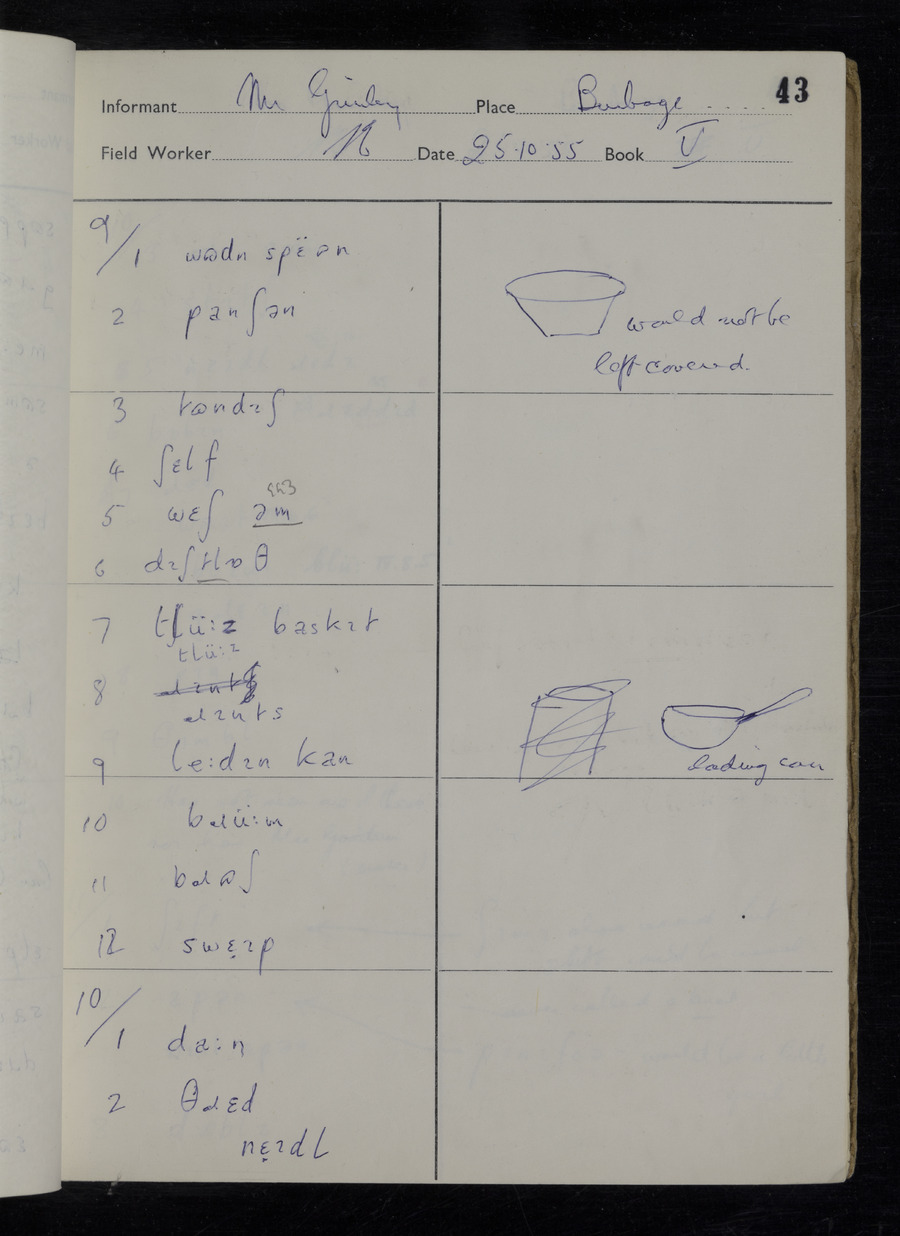 43
Informant Mr Place Burbage
Field Worker Date 25·10·55 Book V
9/1 wɷdn spëən
2 panʃən
would not be
left covered.
3 tɷndɪʃ
4 ʃɛlf
5 wɛʃ əm
6 dɪʃtlɒθ
7 tlü:z baskɪt
tlü:z
8
ɹɪnts
9 le:dɪn kan
lading can
10 bɹü:m
11 bɹɷʃ
12 swɛ̣ɪp
10/1 da:n
2 θɹɛd
nɛ̣ɪdl